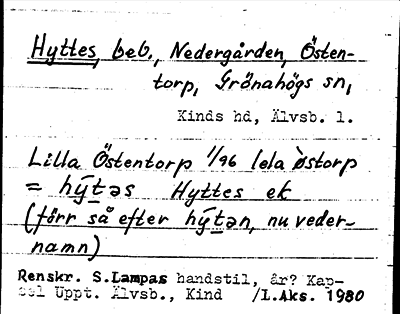 Hyttes, beb., Nedergården, Östen-
torp, Grönahögs sn,
Kinds hd, Älvsb. l.
Lilla Östentorp 1/96 lela østorp
= hýtəs Hyttes ek
(förr så efter hýtən, nu veder-
namn)
Renskr. S.Lampas handstil, år? Kap-
sel Uppt. Älvsb., Kind /I.Aks. 1980